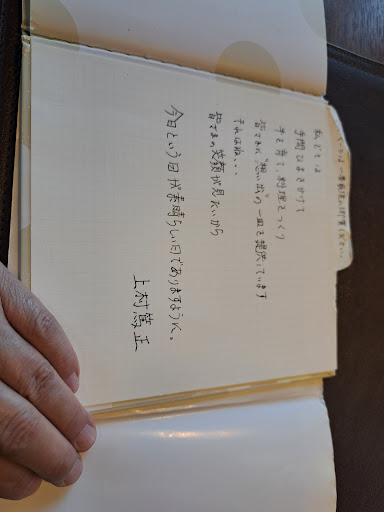 私どもは
手間ひまをかけて
牛を育て、料理をつくり
皆さまに“想い出”の一皿を提供しています
それはね、、、
皆さまの笑顔が見たいから
今日という日が素晴らしい日でありますように。
上村篤正